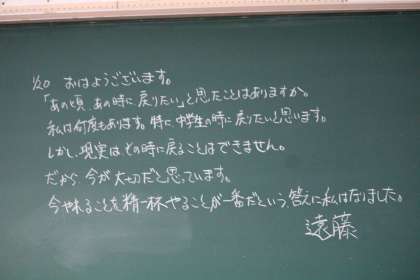 1/20 おはようございます。
「あの頃、あの時に戻りたい」と思たことはありますか。
私は何度もあります。特に、中学生の時に戻りたいと思います。
しかし、現実は、その時に戻ることはできません。
だから、今が大切だと思っています。
今やれることを精一杯やることが一番だという、答えに私はなりました。
遠藤